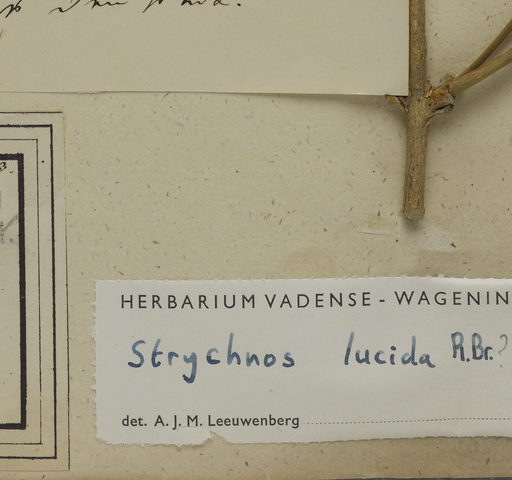 HERBARIUM VADENSE - WAGENIN
Strychnos lucida R.Br.?
det. A. J. M. Leeuwenberg